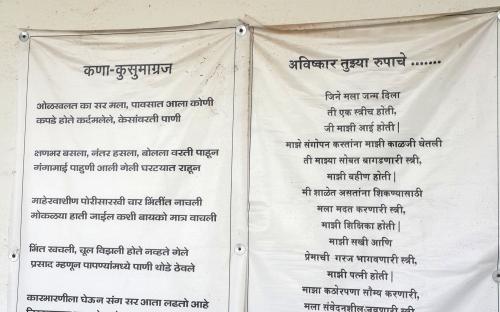 कणा-कुसुमाग्रज
ओळखलत का सर मला, पावसात आला कोणी
कपडे होते कर्दमलेले, केसांवरती पाणी
क्षणभर बसला, नंतर हसला, बोलला वरती पाहून
गंगामाई पाहुणी आली गेली घरट्यात राहून
माहेरवाशीण पोरीसारखी चार भिंतींत नाचली
मोकळ्या हाती जाईल कशी बायको मात्र वाचली
भिंत खचली, चूल विझली होते नव्हते गेले
प्रसाद म्हणून पापण्यांमध्ये पाणी थोडे ठेवले
कारभारणीला घेऊन संग सर आता लढतो आहे
अविष्कार तुझ्या रुपाचे .......
जिने मला जन्म दिला
ती एक स्त्रीच होती,
जी माझी आई होती|
माझे संगोपन करतांना माझी काळजी घेतली
ती माझ्या सोबत बागडणारी स्त्री,
माझी बहीण होती|
मी शाळेत असतांना शिकण्यासाठी
मला मदत करणारी स्त्री,
माझी शिक्षिका होती|
माझी सखी आणि
प्रेमाची गरज भागवणारी स्त्री,
माझी पत्नी होती|
माझ्या कठोरपणा सौम्य करणारी,
मला